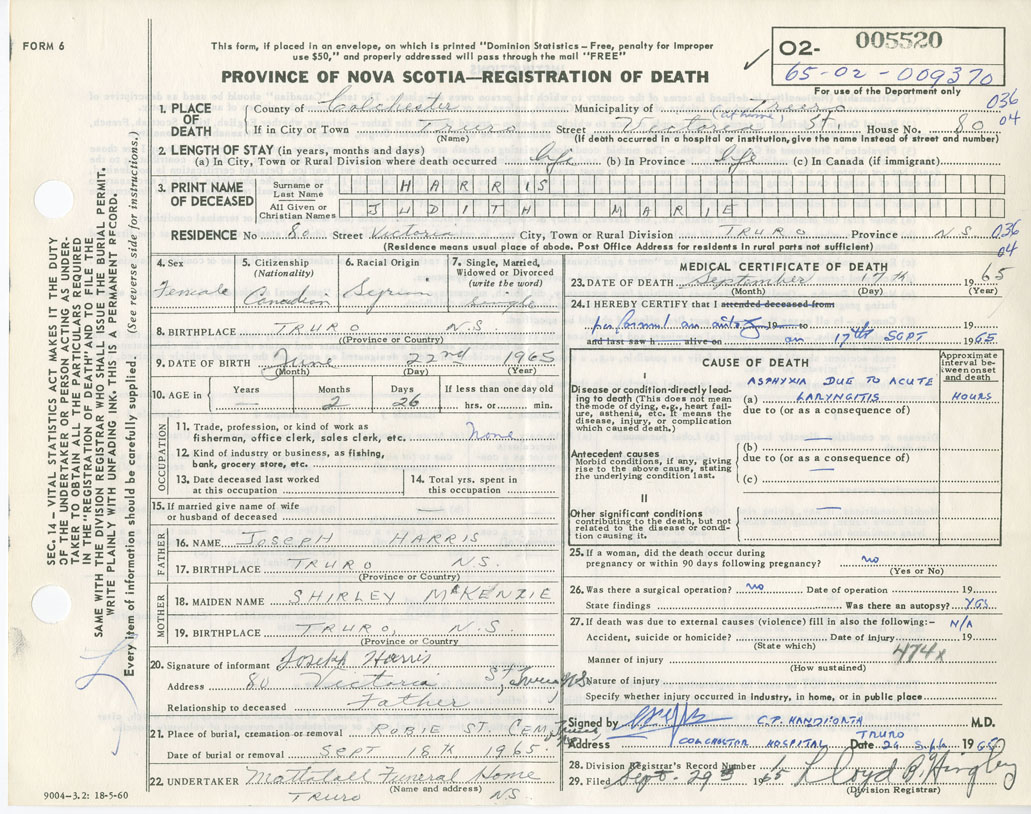 FORM 6
This form, if placed in an envelope, on which is printed "Dominion Statistics – Free, penalty for Improper
use $50," and properly addressed will pass through the mail "FREE"
PROVINCE OF NOVA SCOTIA—REGISTRATION OF DEATH
02- 005520
65-02-009370
For use of the Department only
1. PLACE OF DEATH
County of Colchester Municipality of Truro 036
(at home) 04
If in City or Town Truro Street Victoria St. House No. 80
(Name) (If death occurred in hospital or institution, give name instead of street and number)
2. LENGTH OF STAY (in years, months and days)
(a) In City, Town or Rural Division where death occurred life (b) In Province life (c) In Canada (if immigrant)
3. PRINT NAME OF DECEASED
Surname or Last Name HARRIS
All Given or Christian Names JUDITH MARIE
RESIDENCE No 80 Street Victoria City, Town or Rural Division TRURO Province N.S. 036
04
(Residence means usual place of abode. Post Office Address for residents in rural parts not sufficient)
4. Sex
Female
5. Citizenship
(Nationality)
Canadian
6. Racial Origin
Syrian
7. Single, Married,
Widowed or Divorced
(write the word)
Single
8. BIRTHPLACE TRURO N.S.
(Province or Country)
9. DATE OF BIRTH June 22nd 1965
(Month) (Day) (Year)
10. AGE in
Years —
Months 2
Days 26
If less than one day old
hrs. or min.
OCCUPATION
11. Trade, profession, or kind of work as
fisherman, office clerk, sales clerk, etc. None
12. Kind of industry or business, as fishing,
bank, grocery store, etc.
13. Date deceased last worked
at this occupation
14. Total yrs. spent in
this occupation
15. If married give name of wife
or husband of deceased —
FATHER
16. NAME JOSEPH HARRIS
17. BIRTHPLACE TRURO N.S.
(Province or Country)
MOTHER
18. MAIDEN NAME SHIRLEY McKENZIE
19. BIRTHPLACE TRURO, N.S.
(Province or Country)
20. Signature of informant Joseph Harris
Address 80 Victoria St., Truro N.S.
Relationship to deceased Father
21. Place of burial, cremation or removal ROBIE ST. CEM. Truro
Date of burial or removal SEPT 18th 1965.
22. UNDERTAKER Mattatall Funeral Home
(Name and address)
TRURO N.S.
9004–3.2: 18-5-60
SEC. 14 – VITAL STATISTICS ACT MAKES IT THE DUTY
OF THE UNDERTAKER OR PERSON ACTING AS UNDER-
TAKER TO OBTAIN ALL THE PARTICULARS REQUIRED
IN THE "REGISTRATION OF DEATH" AND TO FILE THE
SAME WITH THE DIVISION REGISTRAR WHO SHALL ISSUE THE BURIAL PERMIT.
WRITE PLAINLY WITH UNFADING INK. THIS IS A PERMANENT RECORD.
Every item of information should be carefully supplied. (See reverse side for instructions.)
MEDICAL CERTIFICATE OF DEATH
23. DATE OF DEATH September 17th 1965
(Month) (Day) (Year)
24. I HEREBY CERTIFY that I attended deceased from
19 to 19
and last saw h alive on 17th SEPT 1965.
CAUSE OF DEATH
Approximate
interval be-
tween onset
and death
I
Disease or condition directly lead-
ing to death (This does not mean
the mode of dying, e.g., heart fail-
ure, asthenia, etc. It means the
disease, injury, or complication
which caused death.)
(a) ASPHYXIA DUE TO ACUTE
LARYNGITIS HOURS
due to (or as a consequence of)
Antecedent causes
Morbid conditions, if any, giving
rise to the above cause, stating
the underlying condition last.
(b) —
due to (or as a consequence of)
(c) —
II
Other significant conditions
contributing to the death, but not
related to the disease or condi-
tion causing it.
25. If a woman, did the death occur during
pregnancy or within 90 days following pregnancy? no
(Yes or No)
26. Was there a surgical operation? no Date of operation 19
State findings Was there an autopsy? YES
27. If death was due to external causes (violence) fill in also the following:– N/A
Accident, suicide or homicide? Date of injury 19
(State which)
474x
Manner of injury
(How sustained)
Nature of injury
Specify whether injury occurred in industry, in home, or in public place
Signed by C.P. HANDFORTH M.D.
TRURO
Address COLCHESTER HOSPITAL Date 24 Sept 1965
28. Division Registrar's Record Number
29. Filed Sept. 29th 1965 Lloyd
(Division Registrar)